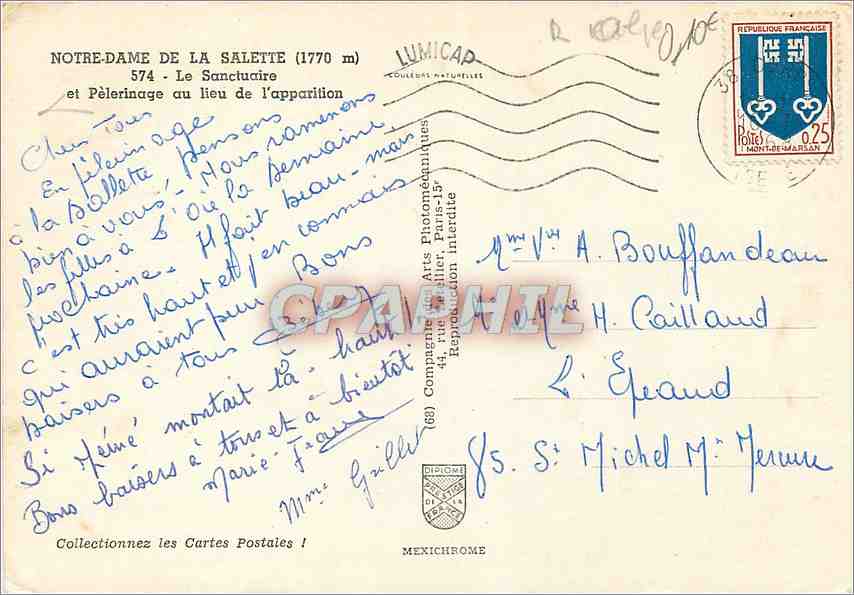 NOTRE-DAME DE LA SALETTE (1770 m)
574 - Le Sanctuaire
et Pèlerinage au lieu de l'apparition
LUMICAP
COULEURS NATURELLES
0,10€
REPUBLIQUE FRANÇAISE
POSTES 0,25
MONT-DE-MARSAN
38
Chers Tous
En pèlerinage
à la Sallette, pensons
bien à vous. Nous ramenons
les filles à L'Oie la semaine
prochaine. Il fait beau - mais
c'est très haut et j'en connais
qui auraient peur Bons
baisers à tous
Si Mémé montait là-haut!
Bons baisers à tous et à bientôt.
Marie-France
Mme Grillet
(68) Compagnie des Arts Photomécaniques
44, rue Letellier, Paris-15e
Reproduction interdite
CPAPHIL
Mme Vve A. Bouffandeau
Mr et Mme H. Caillaud
L'Epeaud
85. St Michel Mt Mercure
DIPLOME
PRESTIGE
DE LA
FRANCE
Collectionnez les Cartes Postales !
MEXICHROME